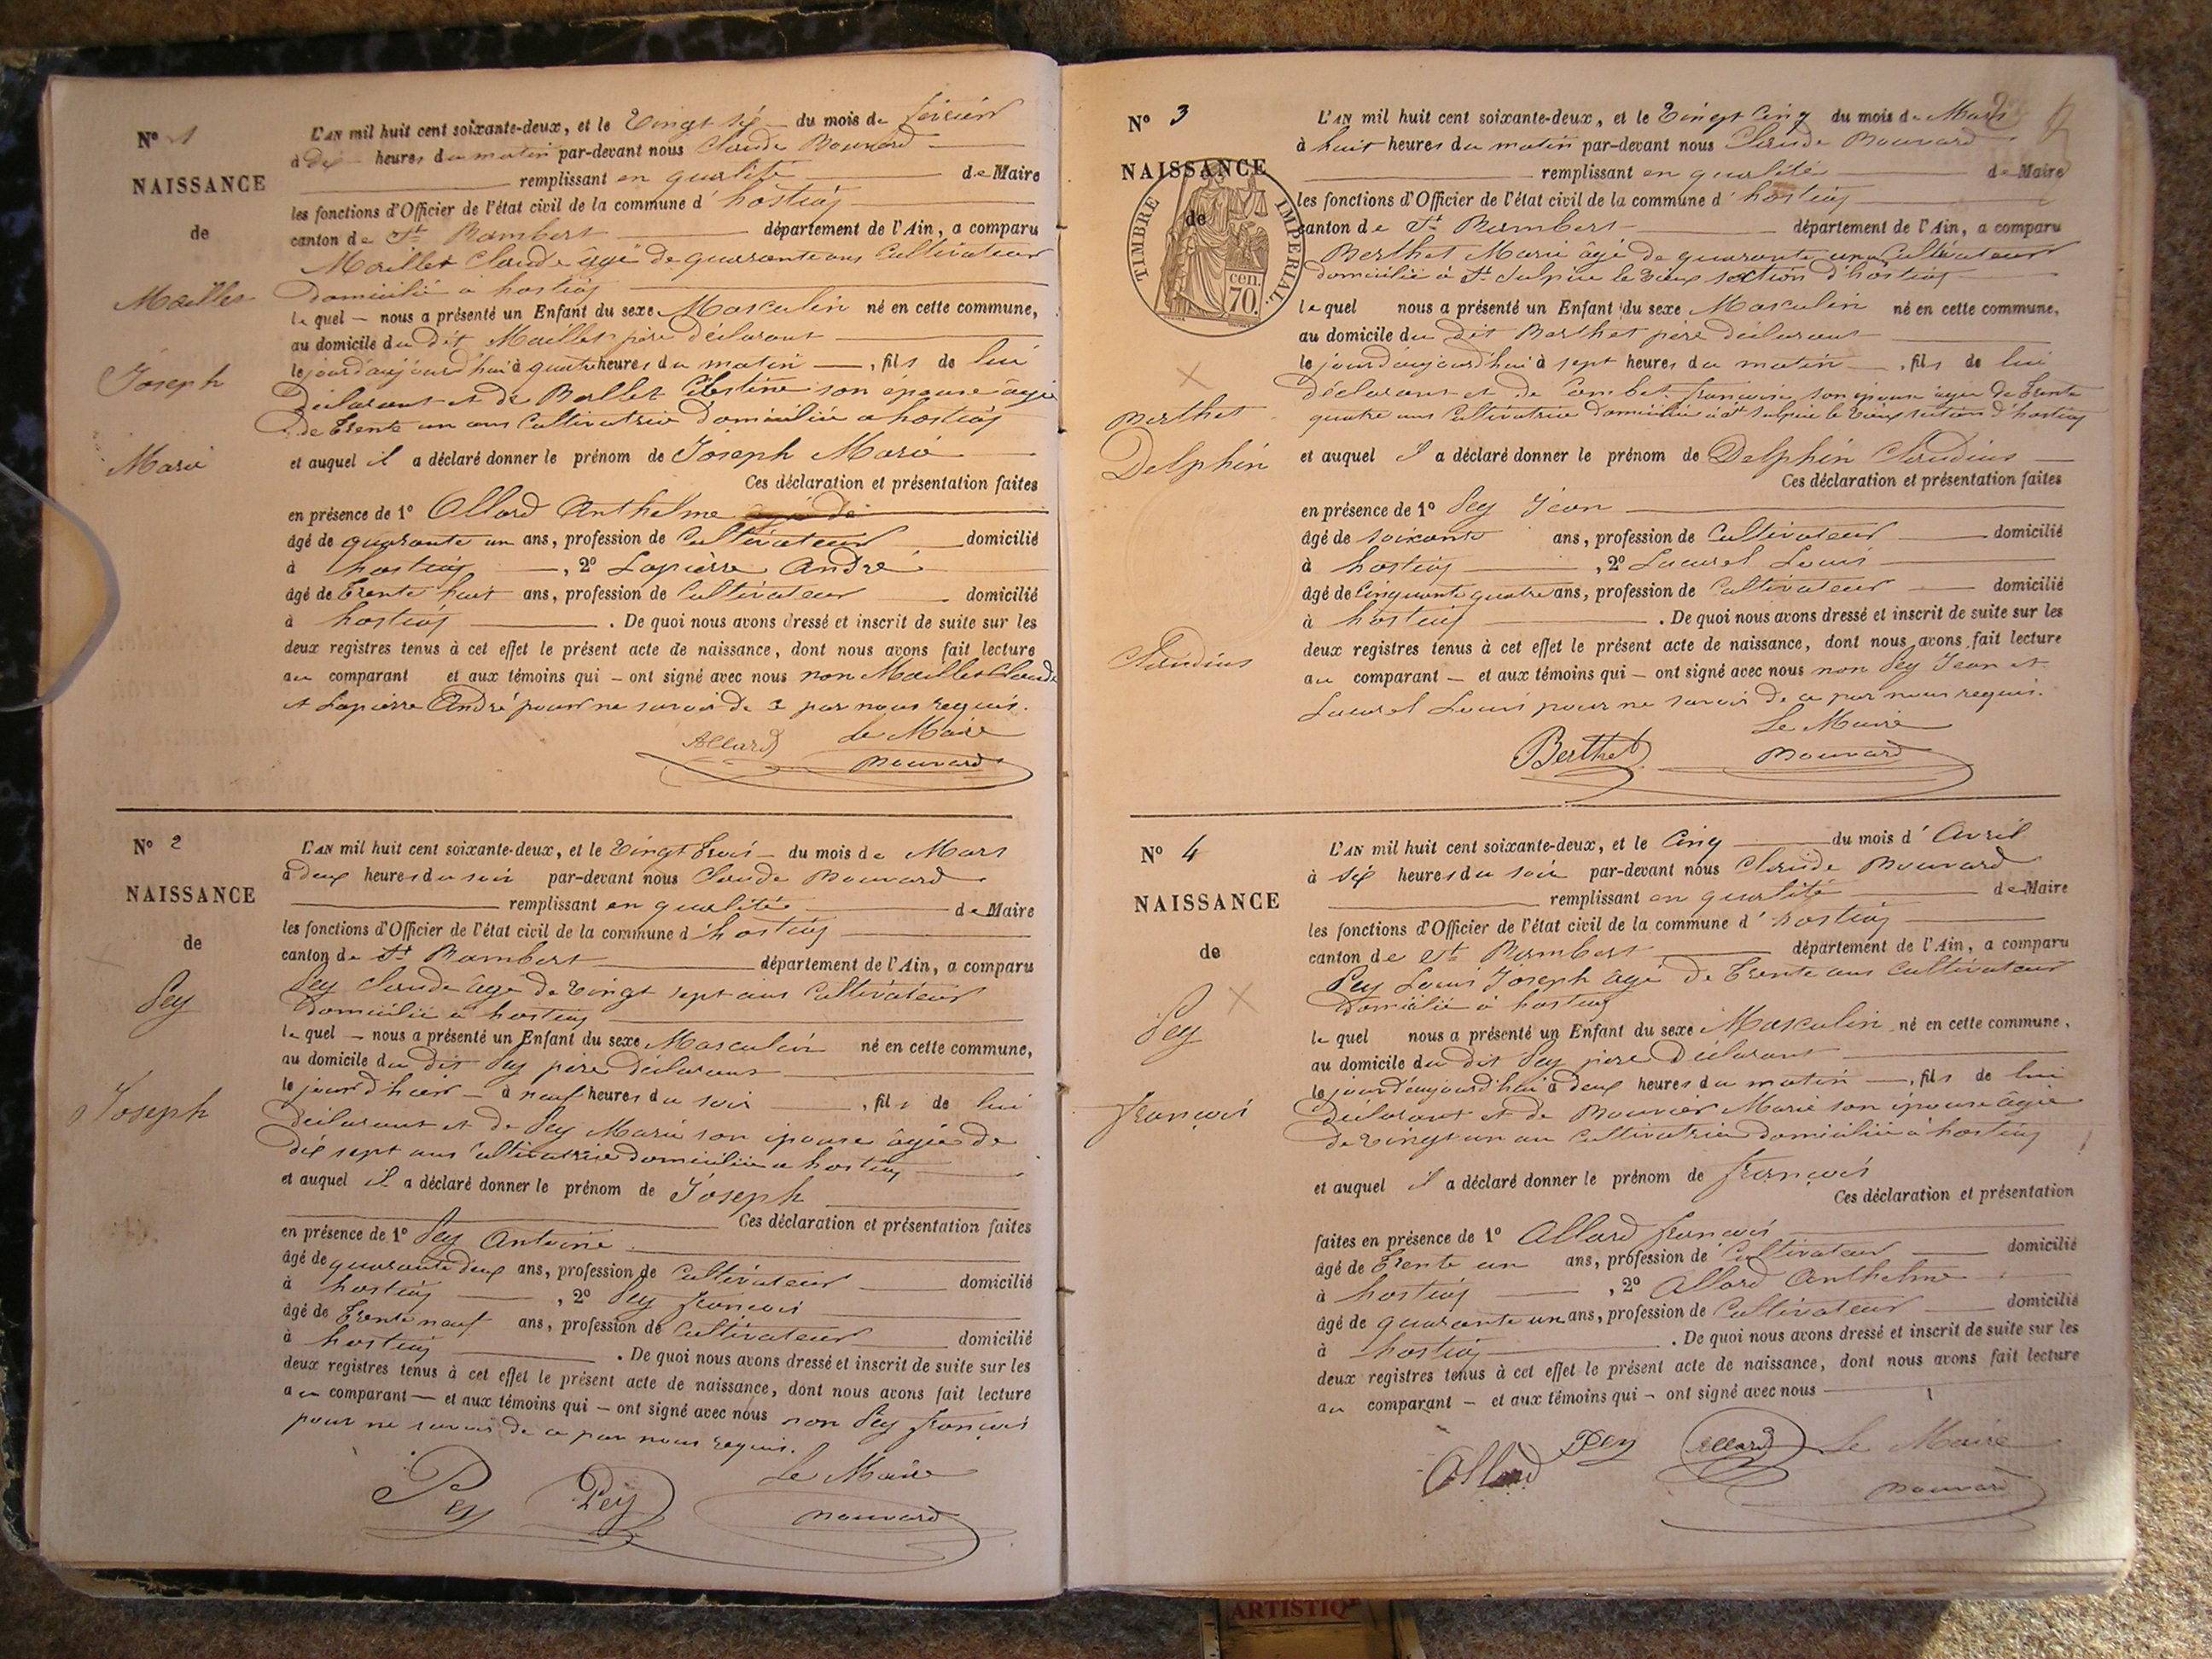 N° 1
NAISSANCE
de
Maillet
Joseph
Marie
L'AN mil huit cent soixante-deux, et le Vingt six du mois de février
à dix heures du matin par-devant nous Claude Bouvard
remplissant en qualité de Maire
les fonctions d'Officier de l'état civil de la commune d'hostiaz
canton de St Rambert département de l'Ain, a comparu
Maillet Claude âgé de quarante ans Cultivateur
domicilié a hostiaz
lequel nous a présenté un Enfant du sexe Masculin né en cette commune,
au domicile du dit Maillet père déclarant
le jourd'aujourd'hui à quatre heures du matin, fils de lui
Déclarant et de Ballet Célestine son épouse âgée
de trente un ans Cultivatrice domiciliée a hostiaz
et auquel il a déclaré donner le prénom de Joseph Marie
Ces déclaration et présentation faites
en présence de 1° Allard Anthelme
âgé de quarante un ans, profession de Cultivateur domicilié
à hostiaz, 2° Lapierre André
âgé de trente huit ans, profession de Cultivateur domicilié
à hostiaz. De quoi nous avons dressé et inscrit de suite sur les
deux registres tenus à cet effet le présent acte de naissance, dont nous avons fait lecture
au comparant et aux témoins qui ont signé avec nous non Maillet Claude
et Lapierre André pour ne savoir de ce par nous requis.
Allard le Maire
Bouvard
N° 2
NAISSANCE
de
Pey
Joseph
L'AN mil huit cent soixante-deux, et le Vingt trois du mois de Mars
à deux heures du soir par-devant nous Claude Bouvard
remplissant en qualité de Maire
les fonctions d'Officier de l'état civil de la commune d'hostiaz
canton de St Rambert département de l'Ain, a comparu
Pey Claude âgé de vingt sept ans Cultivateur
domicilié a hostiaz
lequel nous a présenté un Enfant du sexe Masculin né en cette commune,
au domicile du dit Pey père déclarant
le jour d'hier à neuf heures du soir, fils de lui
déclarant et de Pey Marie son épouse âgée de
dix sept ans Cultivatrice domiciliée a hostiaz
et auquel il a déclaré donner le prénom de Joseph
Ces déclaration et présentation faites
en présence de 1° Pey Antoine
âgé de quarante deux ans, profession de Cultivateur domicilié
à hostiaz, 2° Pey françois
âgé de trente neuf ans, profession de Cultivateur domicilié
à hostiaz. De quoi nous avons dressé et inscrit de suite sur les
deux registres tenus à cet effet le présent acte de naissance, dont nous avons fait lecture
au comparant et aux témoins qui ont signé avec nous non Pey françois
pour ne savoir de ce par nous requis.
Pey Pey Le Maire
Bouvard
N° 3
NAISSANCE
de
TIMBRE IMPERIAL
70 cen.
Berthet
Delphin
Claudius
L'AN mil huit cent soixante-deux, et le Vingt Cinq du mois de Mars
à huit heures du matin par-devant nous Claude Bouvard
remplissant en qualité de Maire
les fonctions d'Officier de l'état civil de la commune d'hostiaz
canton de St Rambert département de l'Ain, a comparu
Berthet Marie âgé de quarante un Cultivateur
domicilié à St Sulpice le Vieux section d'hostiaz
lequel nous a présenté un Enfant du sexe Masculin né en cette commune,
au domicile du dit Berthet père déclarant
le jourd'aujourd'hui à sept heures du matin, fils de lui
déclarant et de Combet françoise son épouse âgée de trente
quatre ans Cultivatrice domiciliée à St Sulpice le Vieux section d'hostiaz
et auquel il a déclaré donner le prénom de Delphin Claudius
Ces déclaration et présentation faites
en présence de 1° Pey Jean
âgé de soixante ans, profession de Cultivateur domicilié
à hostiaz, 2° Louis
âgé de Cinquante quatre ans, profession de Cultivateur domicilié
à hostiaz. De quoi nous avons dressé et inscrit de suite sur les
deux registres tenus à cet effet le présent acte de naissance, dont nous avons fait lecture
au comparant et aux témoins qui ont signé avec nous non Pey Jean et
Louis pour ne savoir de ce par nous requis.
Le Maire
Berthet Bouvard
N° 4
NAISSANCE
de
Pey
françois
L'AN mil huit cent soixante-deux, et le Cinq du mois d'Avril
à six heures du soir par-devant nous Claude Bouvard
remplissant en qualité de Maire
les fonctions d'Officier de l'état civil de la commune d'hostiaz
canton de St Rambert département de l'Ain, a comparu
Pey Louis Joseph âgé de trente ans Cultivateur
domicilié à hostiaz
lequel nous a présenté un Enfant du sexe Masculin né en cette commune,
au domicile du dit Pey père déclarant
le jourd'aujourd'hui à deux heures du matin, fils de lui
déclarant et de Bouvier Marie son épouse âgée
de vingt un an Cultivatrice domiciliée à hostiaz
et auquel il a déclaré donner le prénom de françois
Ces déclaration et présentation
faites en présence de 1° Allard françois
âgé de trente un ans, profession de Cultivateur domicilié
à hostiaz, 2° Allard Anthelme
âgé de quarante un ans, profession de Cultivateur domicilié
à hostiaz. De quoi nous avons dressé et inscrit de suite sur les
deux registres tenus à cet effet le présent acte de naissance, dont nous avons fait lecture
au comparant et aux témoins qui ont signé avec nous
Allard Pey Allard Le Maire
Bouvard
ARTISTIQ